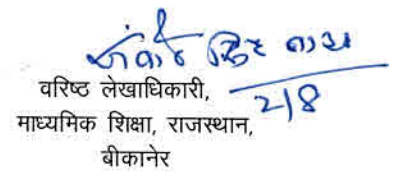 वरिष्ठ लेखाधिकारी,
2/8
माध्यमिक शिक्षा, राजस्थान,
बीकानेर